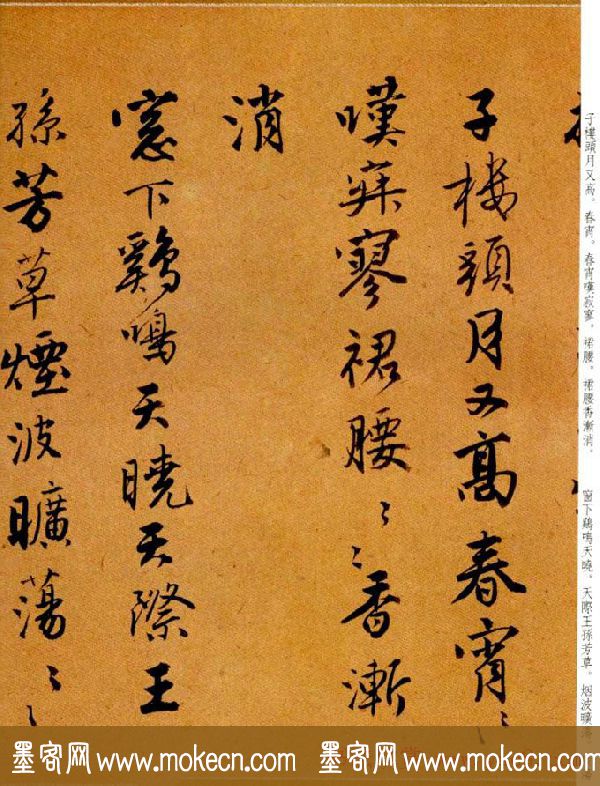 子楼頭月又高春宵〻〻
嘆寂寥裙腰〻〻香漸
消
窓下鷄鳴天曉天際王
孫芳草煙波曠蕩〻〻
子樓頭月又高。春宵。春宵嘆寂寥。裙腰。裙腰香漸消。
窗下鷄鳴天曉。天際王孫芳草。烟波曠
墨客网 www.mokecn.com 墨客网 www.mokecn.com